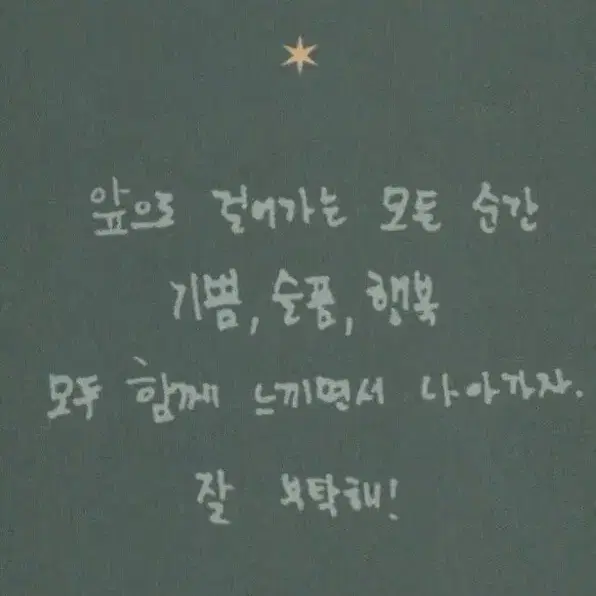 앞으로 걸어가는 모든 순간
기쁨, 슬픔, 행복
모두 함께 느끼면서 나아가자.
잘 부탁해!